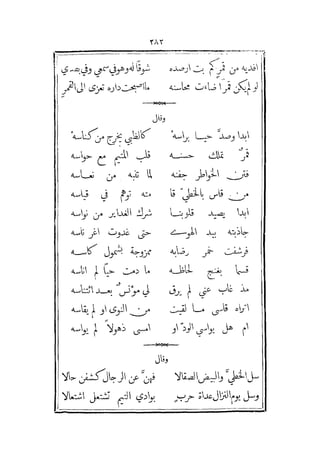 ٣٨٢
افديه من قمرٍ كم بت ارصده شوقًا له وهو في سمعي وفي بصري
لو لم يكن قمرًا ضاءت محاسنه ما اصبحت داره تعزى الى القمرِ
وقال
ابدا وصدَّ حيـــا براسهْ كالظبي يخرج من كناسهْ
قمرٌ تملك حسنــه قلب المتيم مع حواسه
فتن الخواطر جفنه لما تنبه من نعــاسه
من قاس بالخطيّ قا مته توهم في قياسه
ابدا يصيد قلوبنــا شرك الغداير من نواسه
جاذبته بيد الهوے حتى غدوت اغر ناسه
فرشفت خمر رضابه ممزوجة بشمول كاســه
قسما بغنج لحاظــه ما دمت حيًّا لم اناسه
مذ غاب عني لم يرق لي مؤنس بعــد ائتناسه
اتراه قاسى مــا لقيت من النوى او لم يقاسه
ام هل يواسي الودّ او امسى ذهولاً لم يواسه
وقال
سل الخطيَّ والبيض الصقالا فهنَّ عن الرجال كشفن حالا
وسل يوم النزال غداة حربٍ بوادي التيم تشتعل اشتعالا